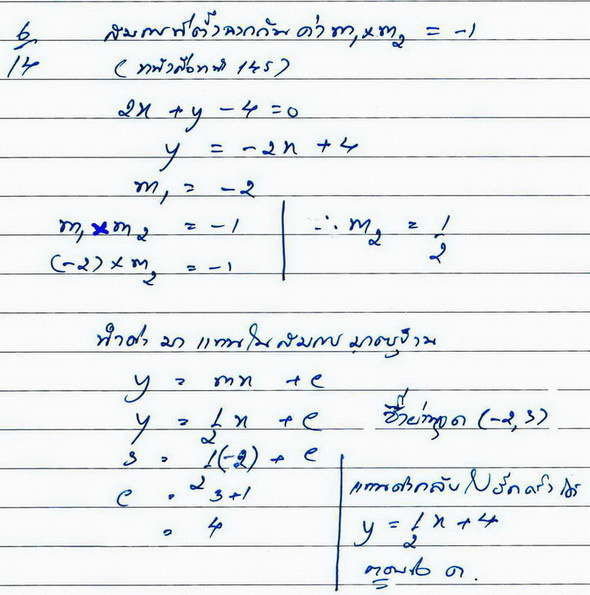 6 สมการที่ตั้งฉากกัน ค่า m₁ × m₂ = -1
14 (หนังสือหน้า 145)
2x + y - 4 = 0
y = -2x + 4
m₁ = -2
m₁ × m₂ = -1 ∴ m₂ = 1/2
(-2) × m₂ = -1
นำค่า มา แทนในสมการ มาตรฐาน
y = mx + c
y = 1/2 x + c (-2, 3)
3 = 1/2 (-2) + c
c = 3+1
= 4
แทนค่ากลับไปอีกครั้ง ได้
y = 1/2 x + 4
ตอบข้อ ค.